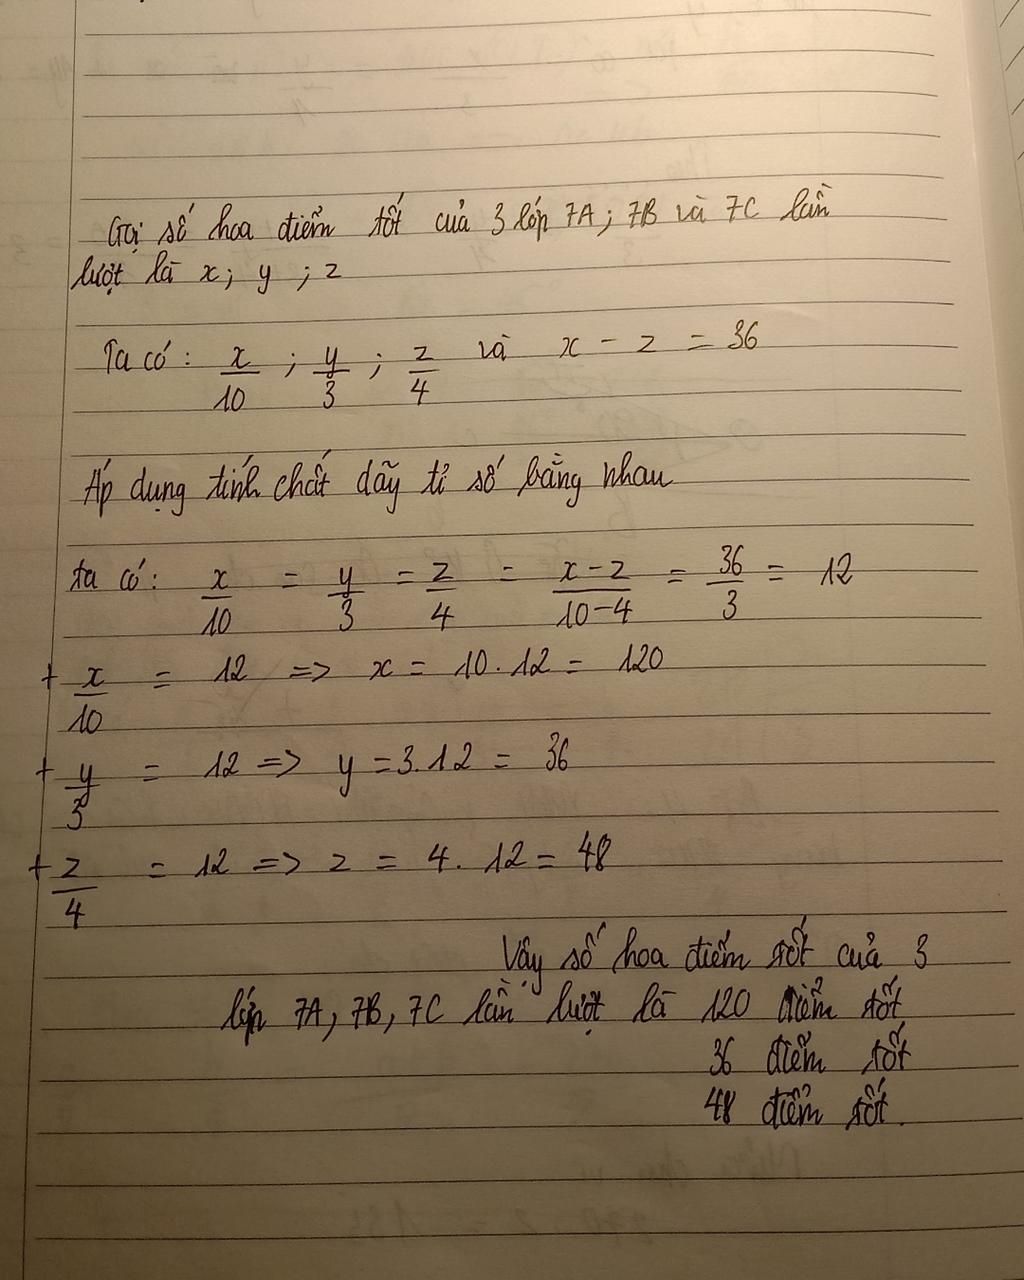 Gọi số hoa điểm tốt của 3 lớp 7A; 7B và 7C lần
lượt là x; y ; z
Ta có: x/10 ; y/3 ; z/4 và x - z = 36
Áp dụng tính chất dãy tỉ số bằng nhau
ta có: x/10 = y/3 = z/4 = x-z/10-4 = 36/3 = 12
+ x/10 = 12 => x = 10.12 = 120
+ y/3 = 12 => y = 3.12 = 36
+ z/4 = 12 => z = 4. 12 = 48
Vậy số hoa điểm tốt của 3
lớp 7A, 7B, 7C lần lượt là 120 điểm tốt
36 điểm tốt
48 điểm tốt.